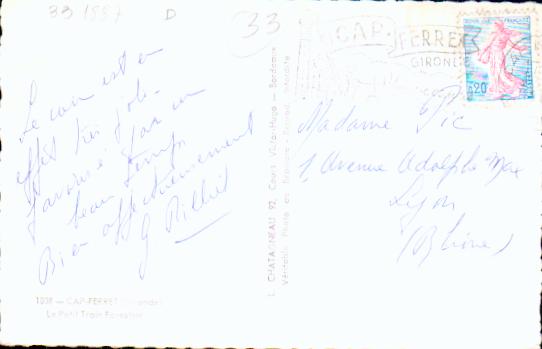 33 1887 D 33
CAP-FERRET
GIRONDE
0,20
Le coin est en
effet très joli
favorisé par un
beau temps
Bien affectueusement
G Rilliet
Madame Pic
1, Avenue Adolphe Max
Lyon
(Rhône)
L. CHATAGNEAU 92, Cours Victor-Hugo - Bordeaux
Véritable Photo en Bromure - Reprod. Interdite
1038 - CAP-FERRET (Gironde)
Le Petit Train Forestier